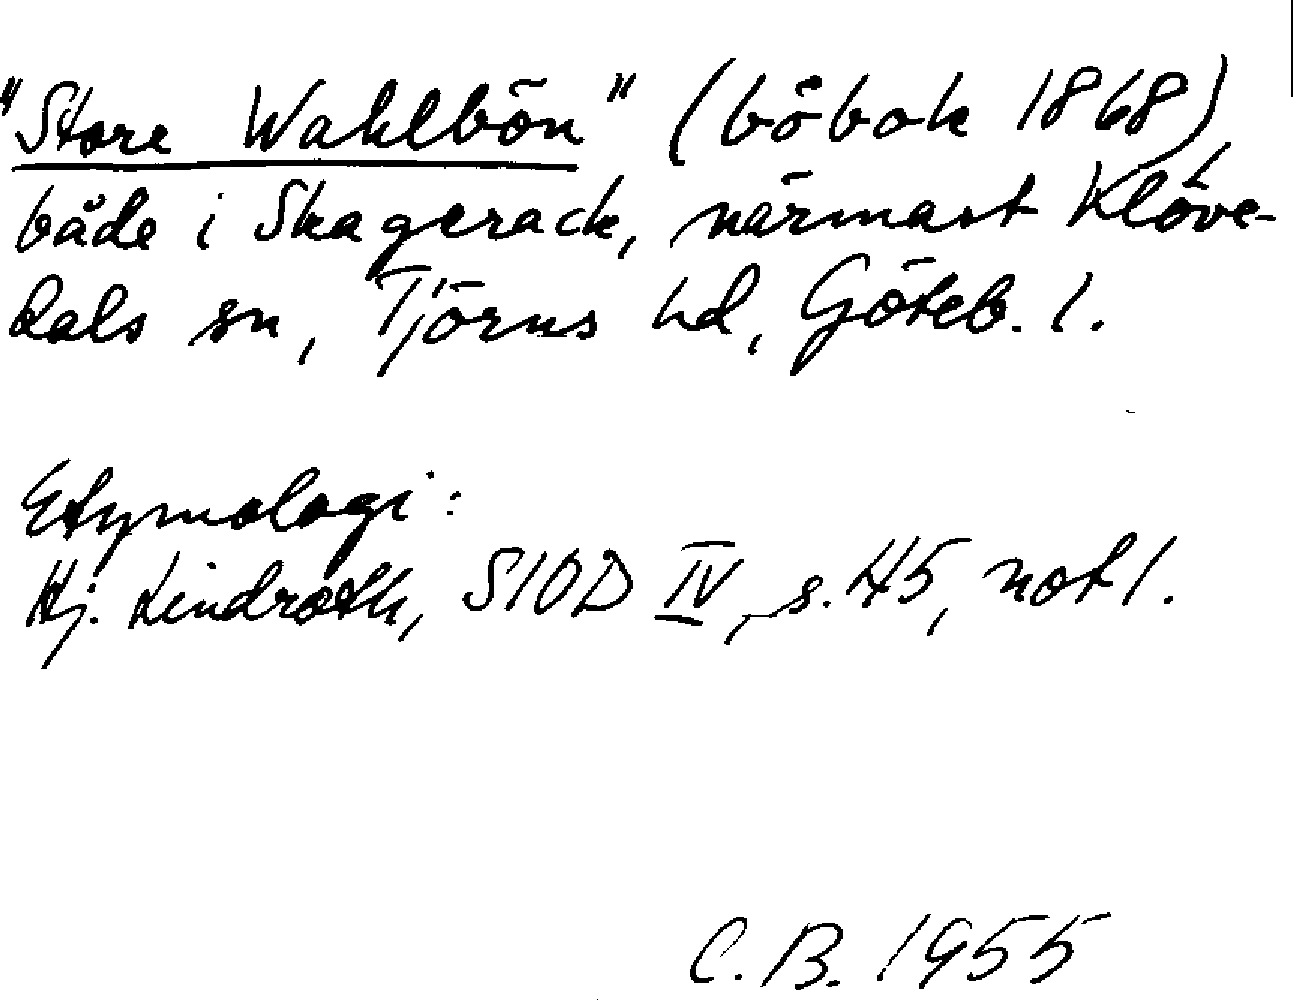 "Store Wahlbön" (båbok 1868)
både i Skagerack, närmast Klöve-
dals sn, Tjörns hd, Göteb. l.
Etymologi:
Hj. Lindroth, SIOD IV, s. 45, not 1.
C. B. 1955